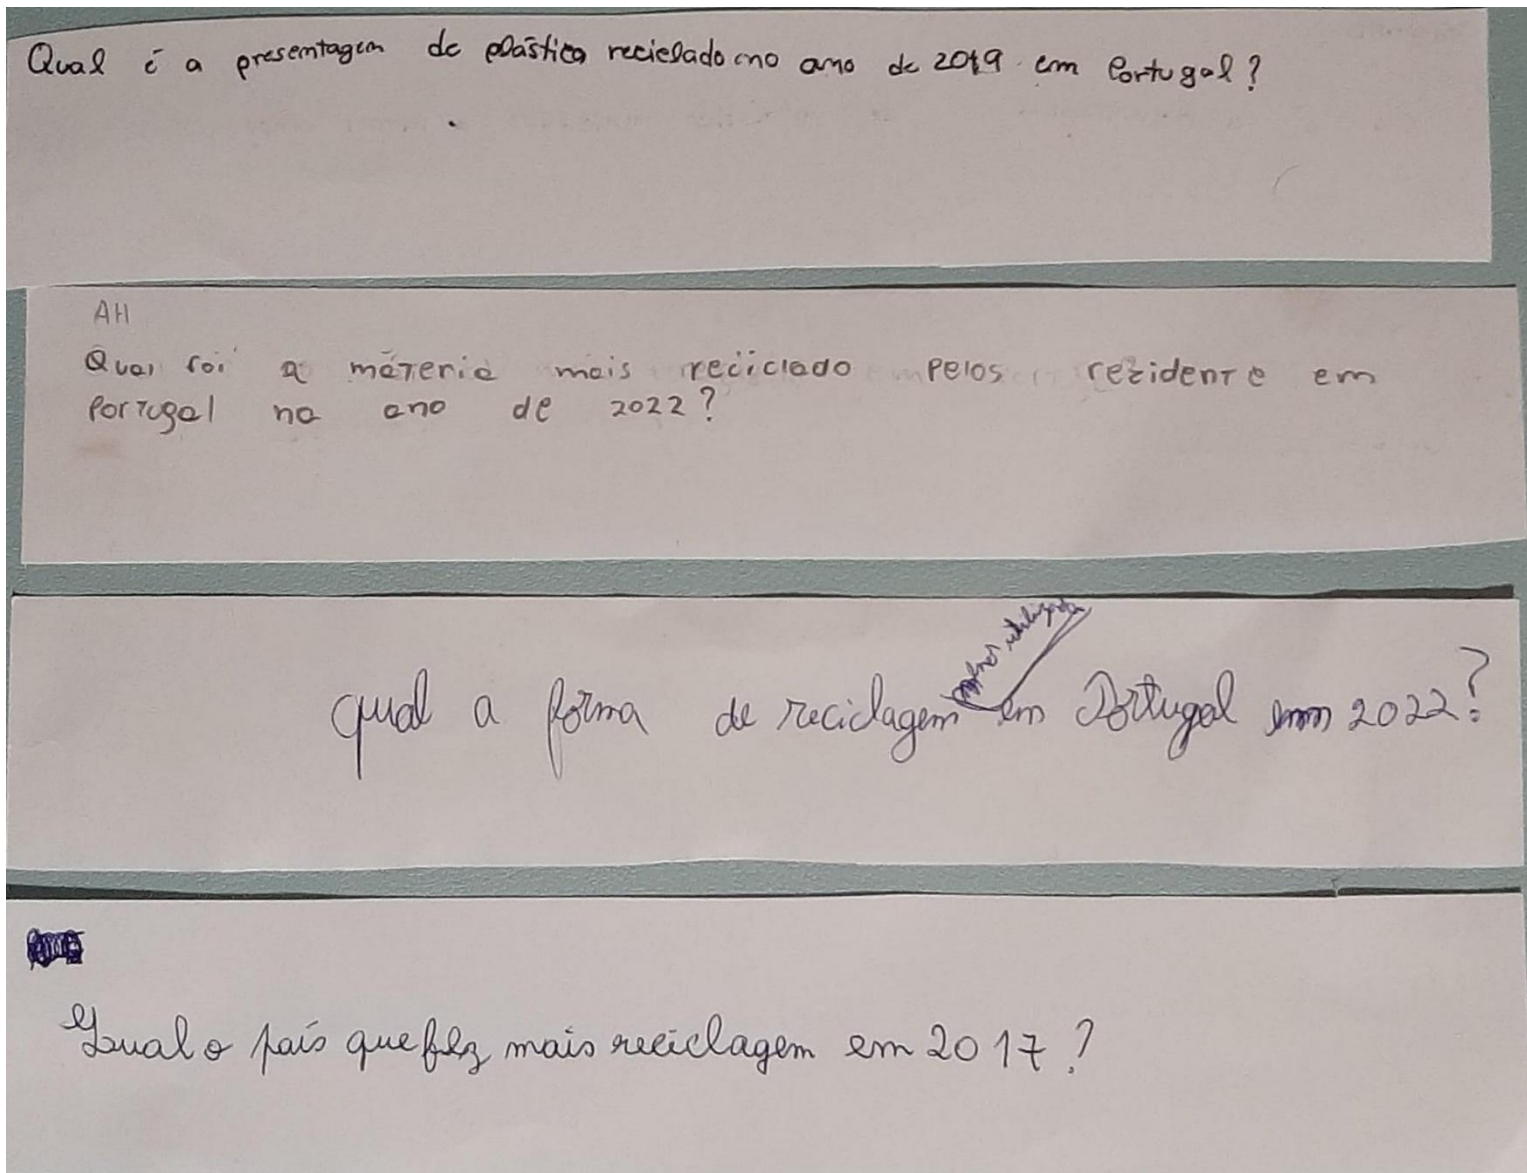 Qual é a presentagem de plástico reciclado no ano de 2019 em Portugal?
AH
Qual foi a materia mais reciclado pelos rezidente em
Portugal no ano de 2022?
qual a forma de reciclagem utilizada em Portugal em 2022?
Qual o país que fez mais reciclagem em 2017?